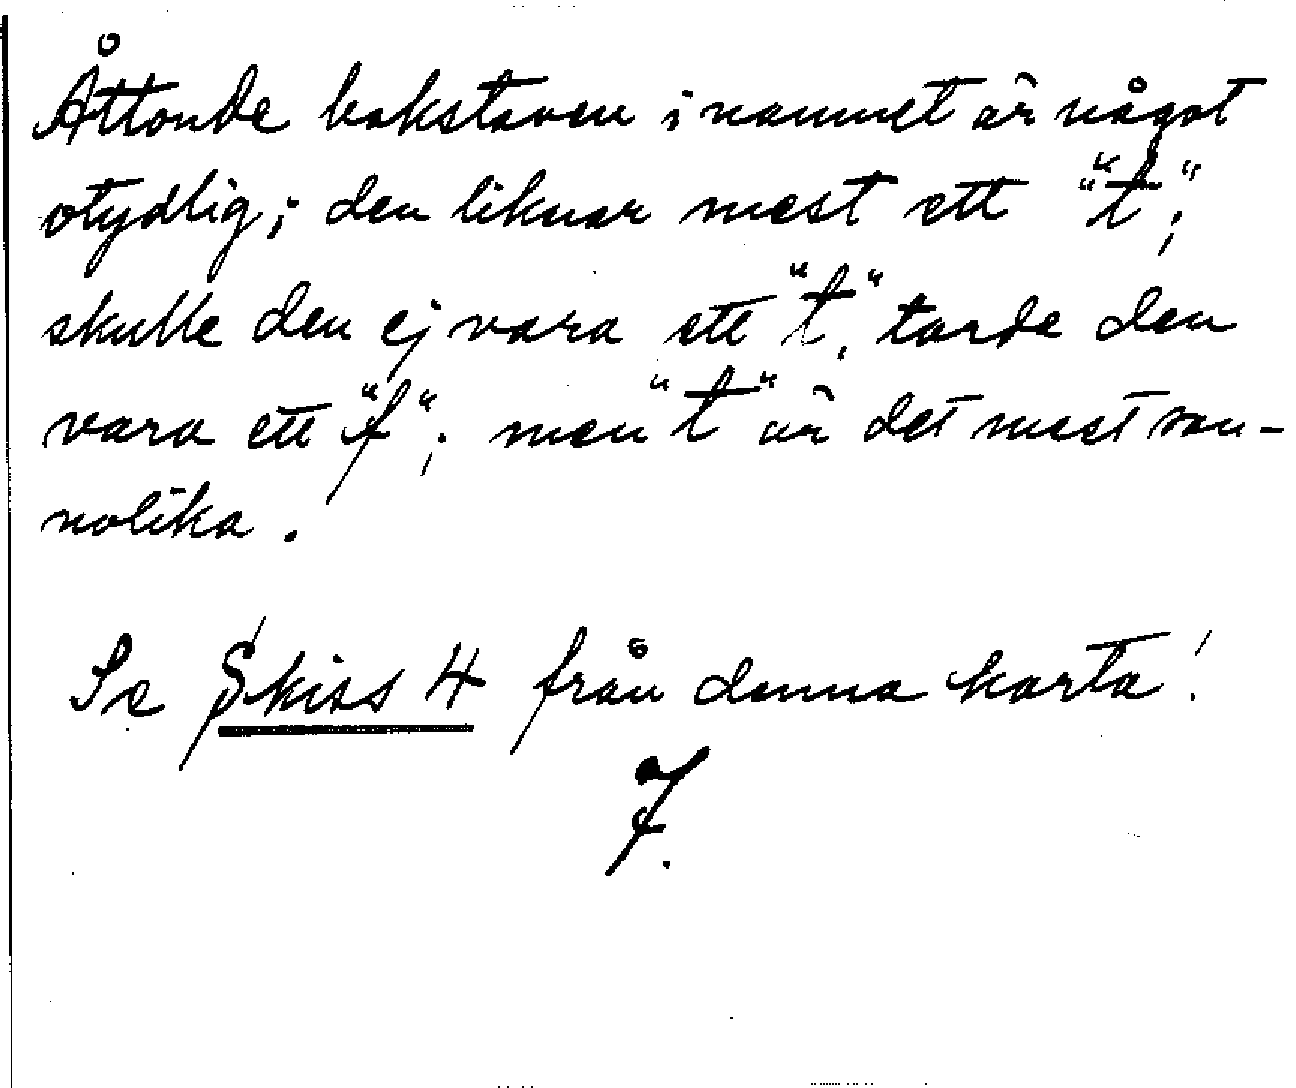 Åttonde bokstaven i namnet är något
otydlig; den liknar mest ett "t";
skulle den ej vara ett "t", torde den
vara ett "f"; men "t" är det mest san-
nolika.
Se Skiss 4 från denna karta!
F.